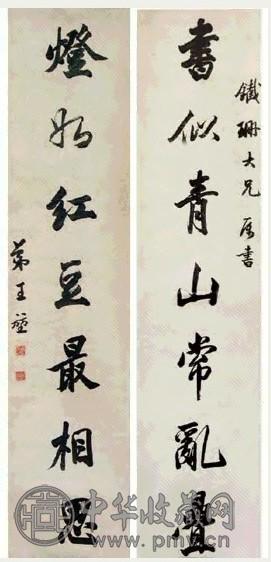 鐵珊大兄屬書
書似青山常亂疊
燈如紅豆最相思
弟王
中华收藏网